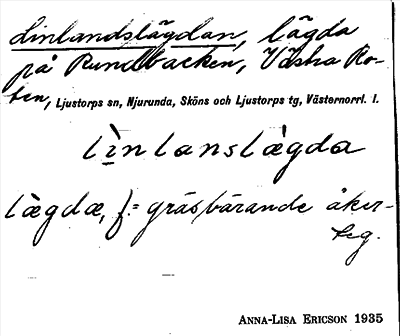 Linlandslägdan, lägda
på Rundbacken, Västra Ro-
ten, Ljustorps sn, Njurunda, Sköns och Ljustorps tg, Västernorrl. l.
lìnlanslàgda
làgdæ, f. = gräsbärande åker-
teg.
ANNA-LISA ERICSON 1935